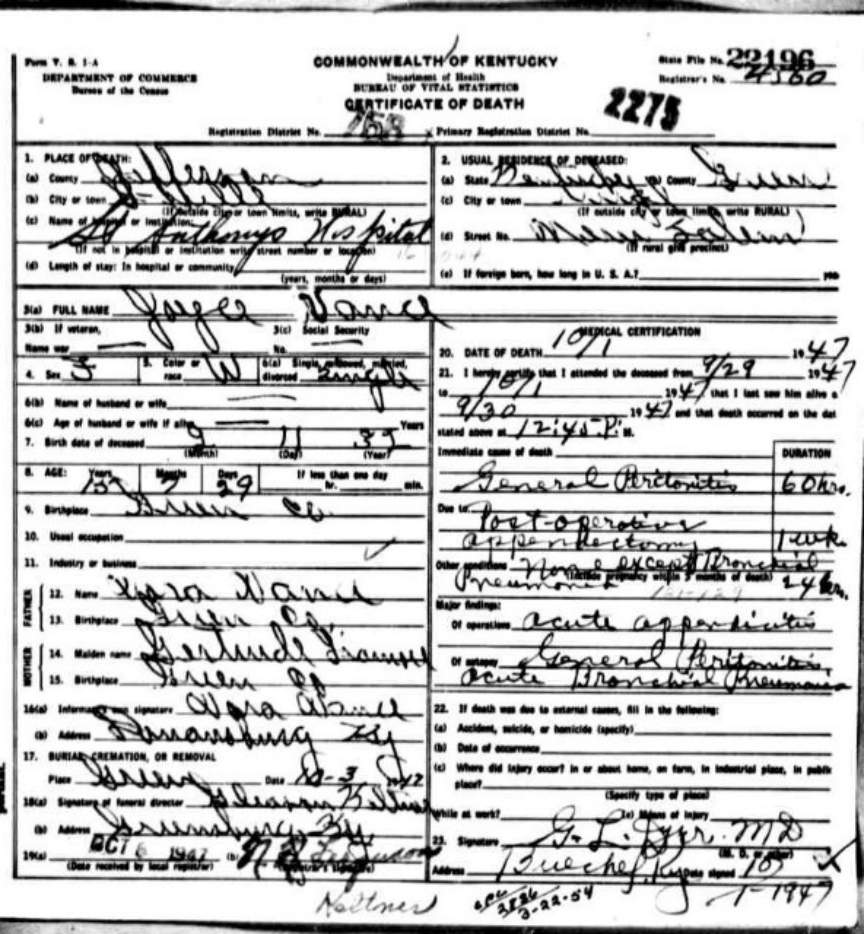 Form V. S. 1-A
DEPARTMENT OF COMMERCE
Bureau of the Census
COMMONWEALTH OF KENTUCKY
Department of Health
BUREAU OF VITAL STATISTICS
CERTIFICATE OF DEATH
State File No. 22196
Registrar's No. 4560
2275
Registration District No. 758 Primary Registration District No.
1. PLACE OF DEATH:
(a) County Jefferson
(b) City or town
(If outside city or town limits, write RURAL)
(c) Name of hospital or institution:
St Anthonys Hospital
(If not in hospital or institution write street number or location)
(d) Length of stay: In hospital or community
(years, months or days)
2. USUAL RESIDENCE OF DECEASED:
(a) State Kentucky (b) County Green
(c) City or town
(If outside city or town limits, write RURAL)
(d) Street No. Salem
(If rural give precinct)
(e) If foreign born, how long in U. S. A.? yes
3(a) FULL NAME Joyce Vance
3(b) If veteran,
Name war —
3(c) Social Security
No. —
4. Sex F 5. Color or race W 6(a) Single, widowed, married, divorced Single
6(b) Name of husband or wife —
6(c) Age of husband or wife if alive — Years
7. Birth date of deceased 2 11
(Month) (Day) (Year)
8. AGE: Years Months Days If less than one day
7 29 hr. min.
9. Birthplace Green Co
10. Usual occupation
11. Industry or business
FATHER
12. Name Vance
13. Birthplace Green Co.
MOTHER
14. Maiden name Gertrude
15. Birthplace Green Co
16(a) Informant's own signature Vance
(b) Address Ky
17. BURIAL, CREMATION, OR REMOVAL
Place Green Date 10-3
18(a) Signature of funeral director
(b) Address Greensburg, Ky.
19(a) OCT 6 1947 (b)
(Date received by local registrar) (Registrar's signature)
MEDICAL CERTIFICATION
20. DATE OF DEATH 10/1 1947
21. I hereby certify that I attended the deceased from 9/29 1947
to 10/1 1947 that I last saw him alive a
9/30 1947 and that death occurred on the dat
stated above at 12:45 P. M.
Immediate cause of death DURATION
General Peritonitis 60 hrs.
Due to Post-operative
appendectomy 1 wk.
Other conditions None except Bronchial
(Include pregnancy within 3 months of death)
Pneumonia 24 hrs.
Major findings:
Of operations acute appendicitis
Of autopsy General Peritonitis,
acute Bronchial Pneumonia
22. If death was due to external causes, fill in the following:
(a) Accident, suicide, or homicide (specify)
(b) Date of occurrence
(c) Where did injury occur? In or about home, on farm, in industrial place, in public
place?
(Specify type of place)
While at work? (e) Means of injury
23. Signature G. L. MD
(M. D. or other)
Address Buechel, Ky Date signed 10
-1-1947
Keltner
3-22-54